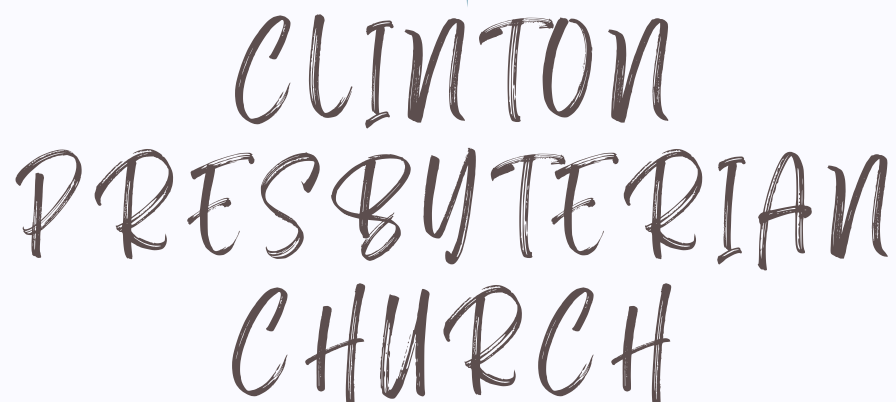 CLINTON
PRESBYTERIAN
CHURCH